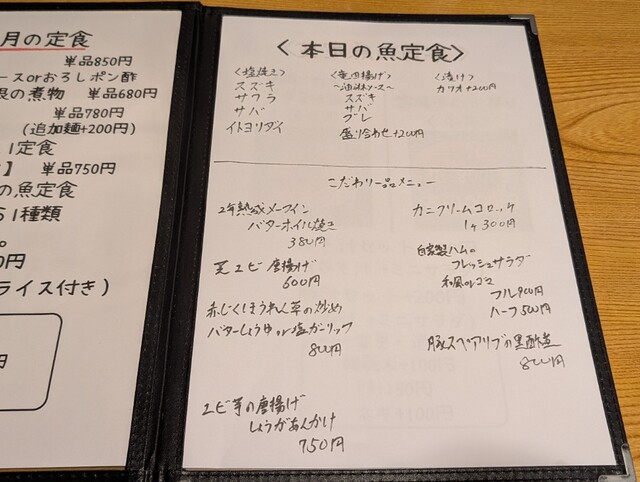 月の定食
単品850円
ースorおろしポン酢
根の煮物 単品680円
単品780円
(追加麺+200円)
1定食
】 単品750円
の魚定食
ら1種類
。
0円
ライス付き)
円
〈本日の魚定食〉
〈塩焼き〉
スズキ
サワラ
サバ
イトヨリダイ
〈竜田揚げ〉
〜油淋ソース〜
スズキ
サバ
グレ
盛り合わせ+200円
〈漬け〉
カツオ+200円
こだわり一品メニュー
2年熟成メークイン
バターホイル焼き
380円
芝エビ唐揚げ
600円
赤じくほうれん草の炒め
バターしょうゆor塩ガーリック
800円
エビ芋の唐揚げ
しょうがあんかけ
750円
カニクリームコロッケ
1ヶ300円
自家製ハムの
フレッシュサラダ
和風orゴマ
フル900円
ハーフ500円
豚スペアリブの黒酢煮
800円